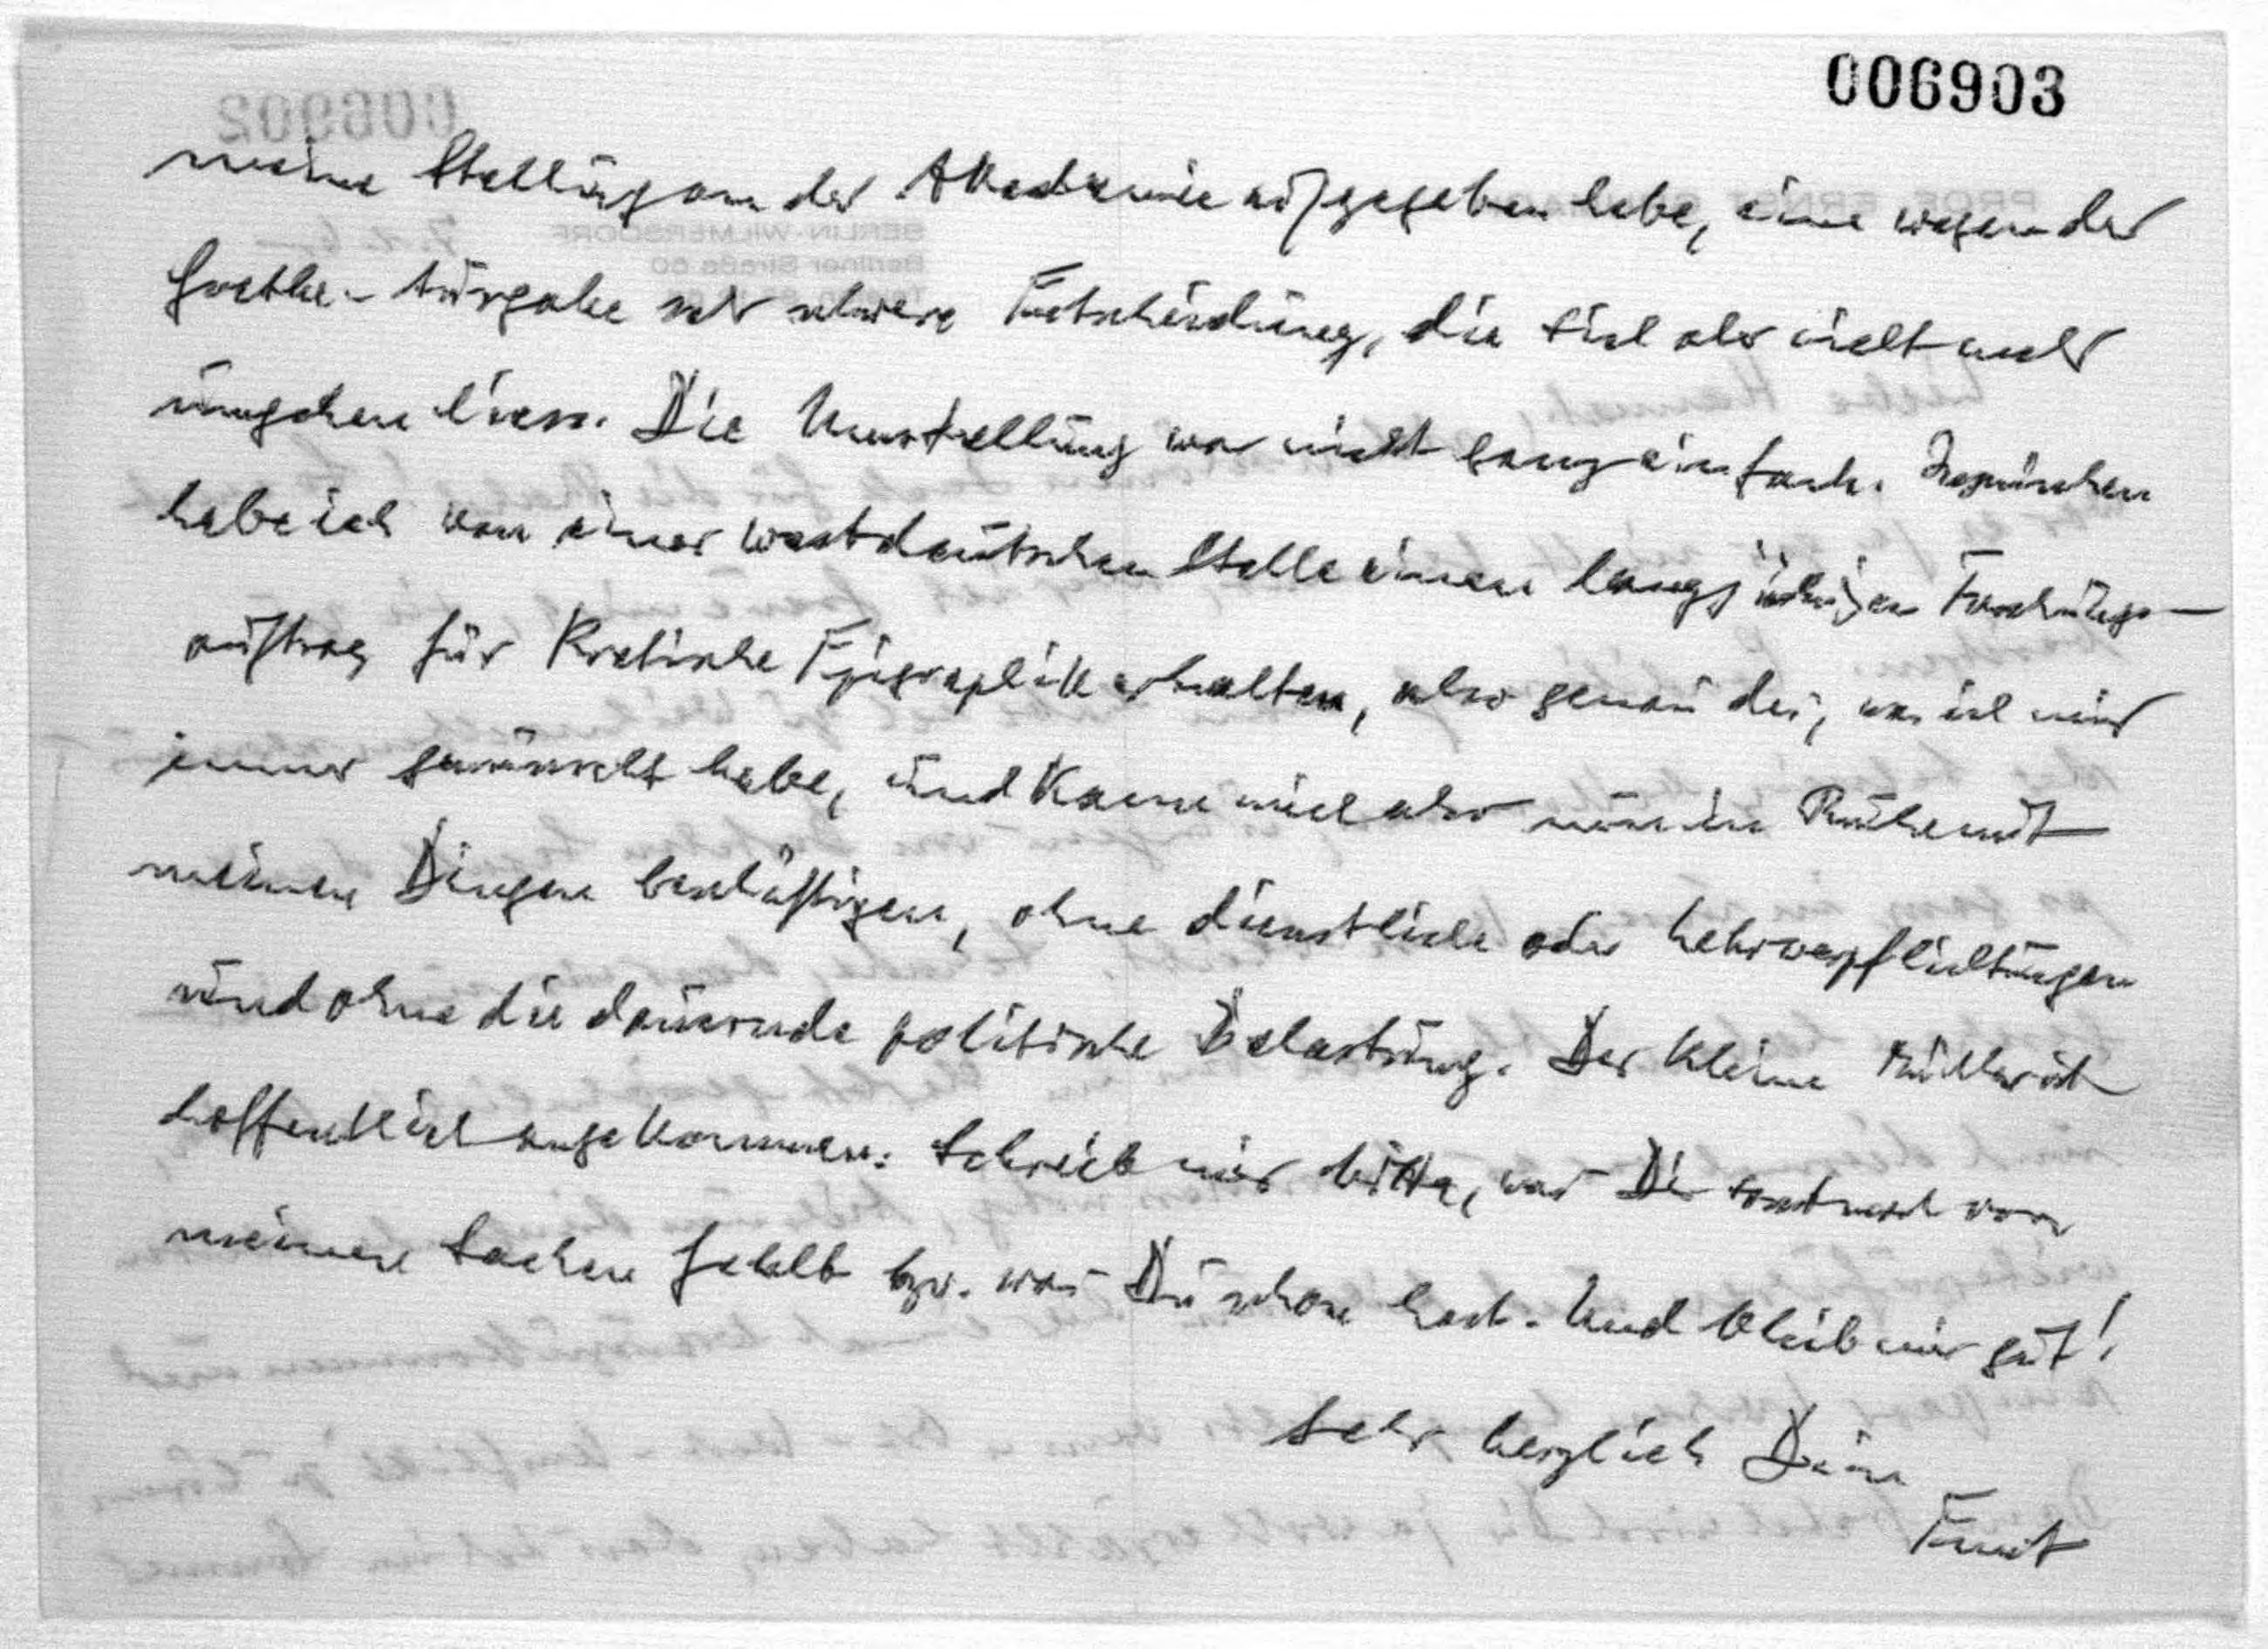 006903
meine Stellung an der Akademie aufgegeben habe, eine wegen der
Goethe-Ausgabe sehr schwere Entscheidung, die sich aber nicht mehr
umgehen liess. Die Umstellung war nicht ganz einfach. Inzwischen
habe ich von einer westdeutschen Stelle einen langjährigen Forschungs-
auftrag für Kritische Epigraphik erhalten, also genau das, was ich mir
immer gewünscht habe, und kann mich also nun in Ruhe mit
meinen Dingen beschäftigen, ohne dienstliche oder Lehrverpflichtungen
und ohne die dauernde politische Belastung. Der kleine Müller ist
hoffentlich angekommen. Schreib mir bitte, was Dir sonst noch von
meinen Sachen fehlt bzw. was Du schon hast. Und bleib mir gut!
Sehr herzlich Dein
Ernst